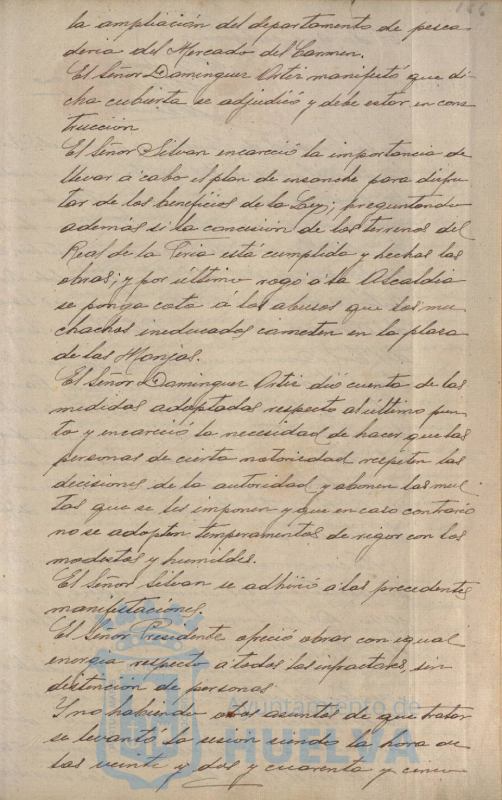 166
la ampliación del departamento de pesca-
deria del Mercado del Carmen.
El Señor Dominguez Ortiz manifestó que di-
cha cubierta se adjudicó y debe estar en cons-
trucción
El Señor Silvan encareció la importancia de
llevar a cabo el plan de ensanche para disfru-
tar de los beneficios de la Ley; preguntando
además si la concesión de los terrenos del
Real de la Feria está cumplida y hechas las
obras; y por último rogó á la Alcaldia
se ponga coto á los abusos que los mu-
chachos ineducados cometen en la plaza
de las Monjas.
El Señor Dominguez Ortiz dió cuenta de las
medidas adoptadas respecto al último pun-
to y encareció la necesidad de hacer que las
personas de cierta notoriedad respeten las
decisiones de la autoridad y abonen las mul-
tas que se les imponen y que en caso contrario
no se adopten temperamentos de rigor con los
modestos y humildes.
El Señor Silvan se adhirió á las precedentes
manifestaciones.
El Señor Presidente ofreció obrar con igual
energia respecto a todos los infractores, sin
distinción de personas
Y no habiendo otros asuntos de que tratar
se levantó la sesion siendo la hora de
las veinte y dos y cuarenta y cinco
Ayuntamiento de
HUELVA